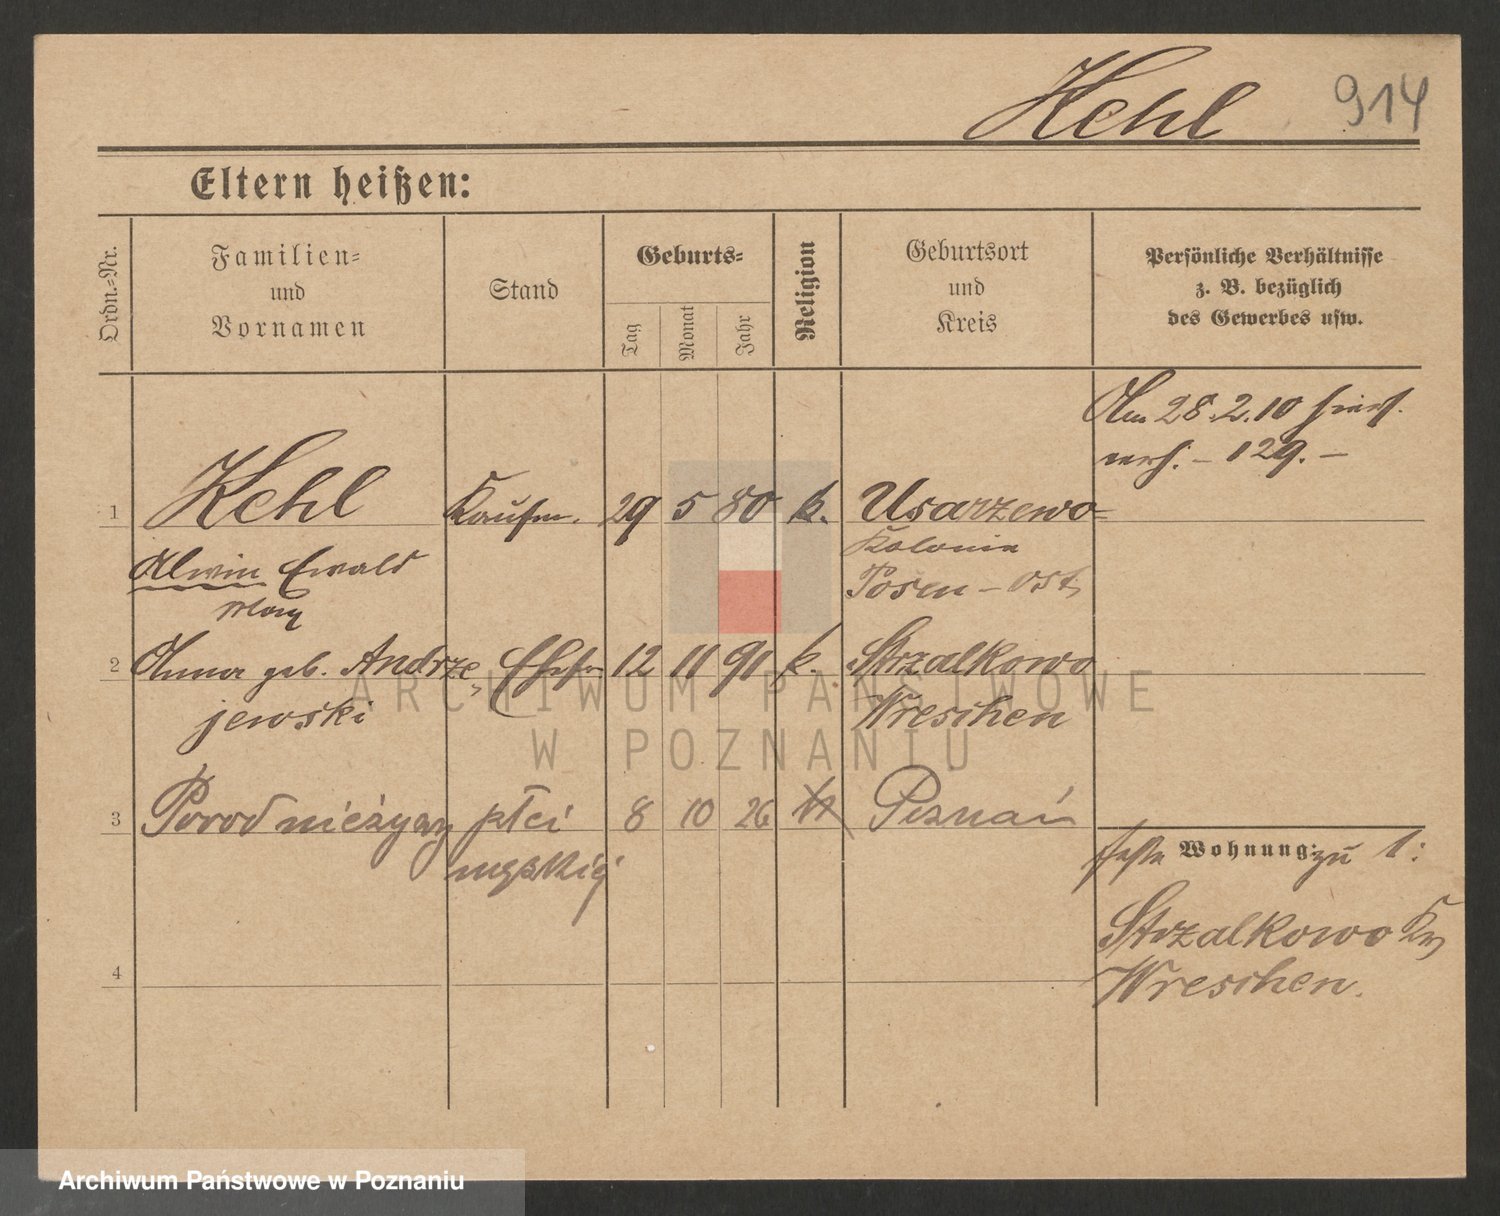 Kehl 914
Eltern heißen:
Ordn.-Nr.
Familien-
und
Vornamen
Stand
Geburts-
Tag
Monat
Jahr
Religion
Geburtsort
und
Kreis
Persönliche Verhältnisse
z. B. bezüglich
des Gewerbes usw.
Am 28.2.10 hier
verh. – 129. –
1 Kehl Kaufm. 29 5 80 k. Usarzewo-
Alwin Ewald
Max
Kolonie
Posen – Ost
2 Anna geb. Andrze Ehefr. 12 11 91 k. Strzalkowo
jewski
Wreschen
3 Poród nieżywy płci 8 10 26 Poznań
męskiej
feste Wohnung: zu 1:
Strzalkowo Kr
Wreschen.
4
ARCHIWUM PAŃSTWOWE
W POZNANIU
Archiwum Państwowe w Poznaniu